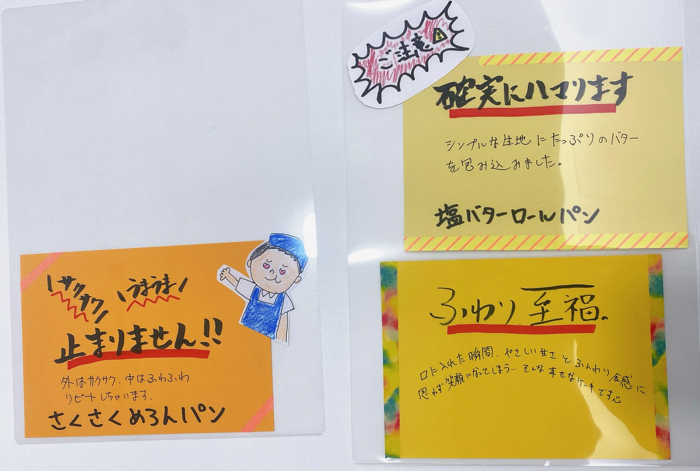 ご注意
確実にハマります
シンプルな生地にたっぷりのバター
を包み込みました。
塩バターロールパン
サクサク うまうま
止まりません!!
外はサクサク、中はふわふわ
リピートしちゃいます。
さくさくめろんパン
ふわり至福。
口に入れた瞬間、やさしい甘さとふんわり食感に
思わず笑顔になってしまう… そんな幸せなケーキです